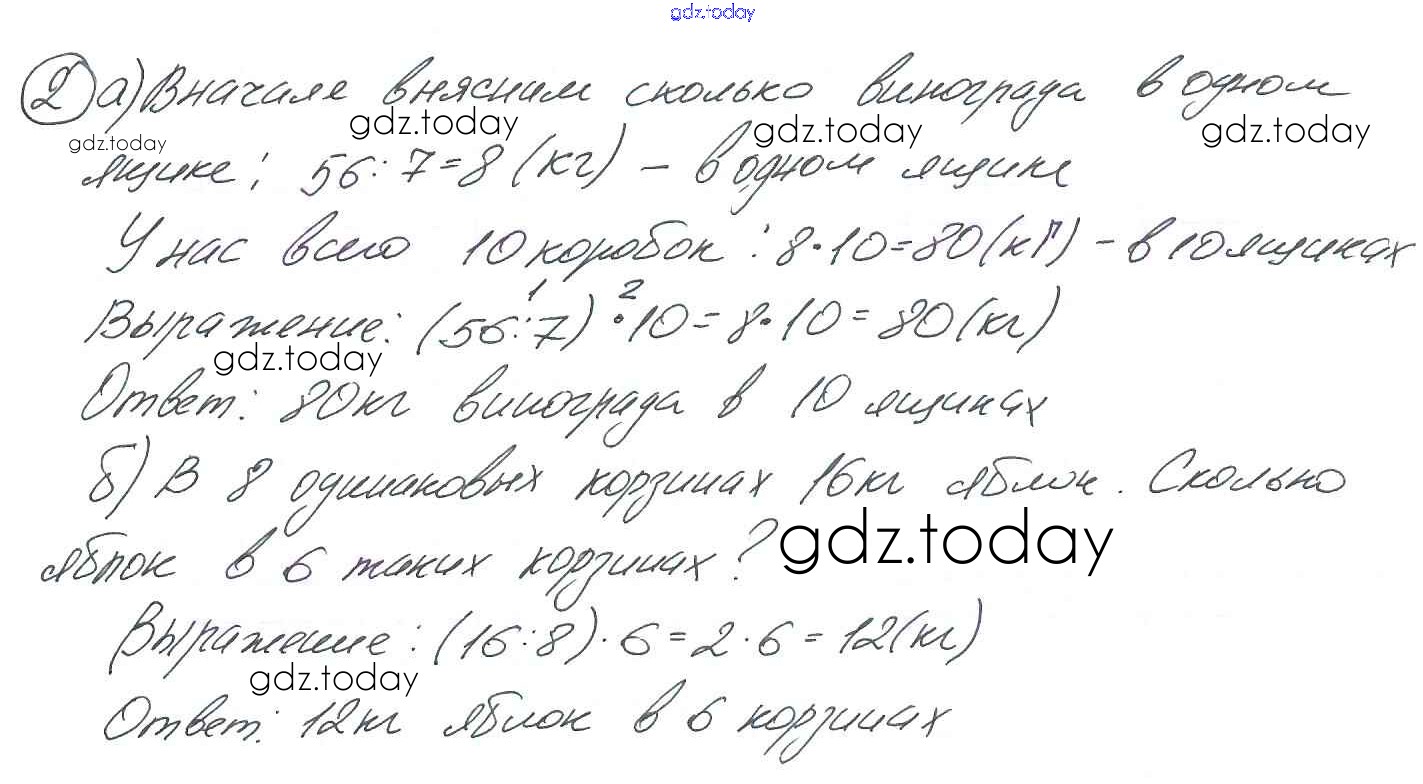 gdz.today
2 а) Вначале выясним сколько винограда в одном
gdz.today gdz.today gdz.today gdz.today
ящике: 56:7=8 (кг) – в одном ящике
У нас всего 10 коробок: 8·10=80(кг) – в 10 ящиках
1 2
Выражение: (56:7)·10=8·10=80(кг)
gdz.today
Ответ: 80кг винограда в 10 ящиках
б) В 8 одинаковых корзинах 16кг яблок. Сколько
gdz.today
яблок в 6 таких корзинах?
Выражение: (16:8)·6=2·6=12(кг)
gdz.today
Ответ: 12кг яблок в 6 корзинах